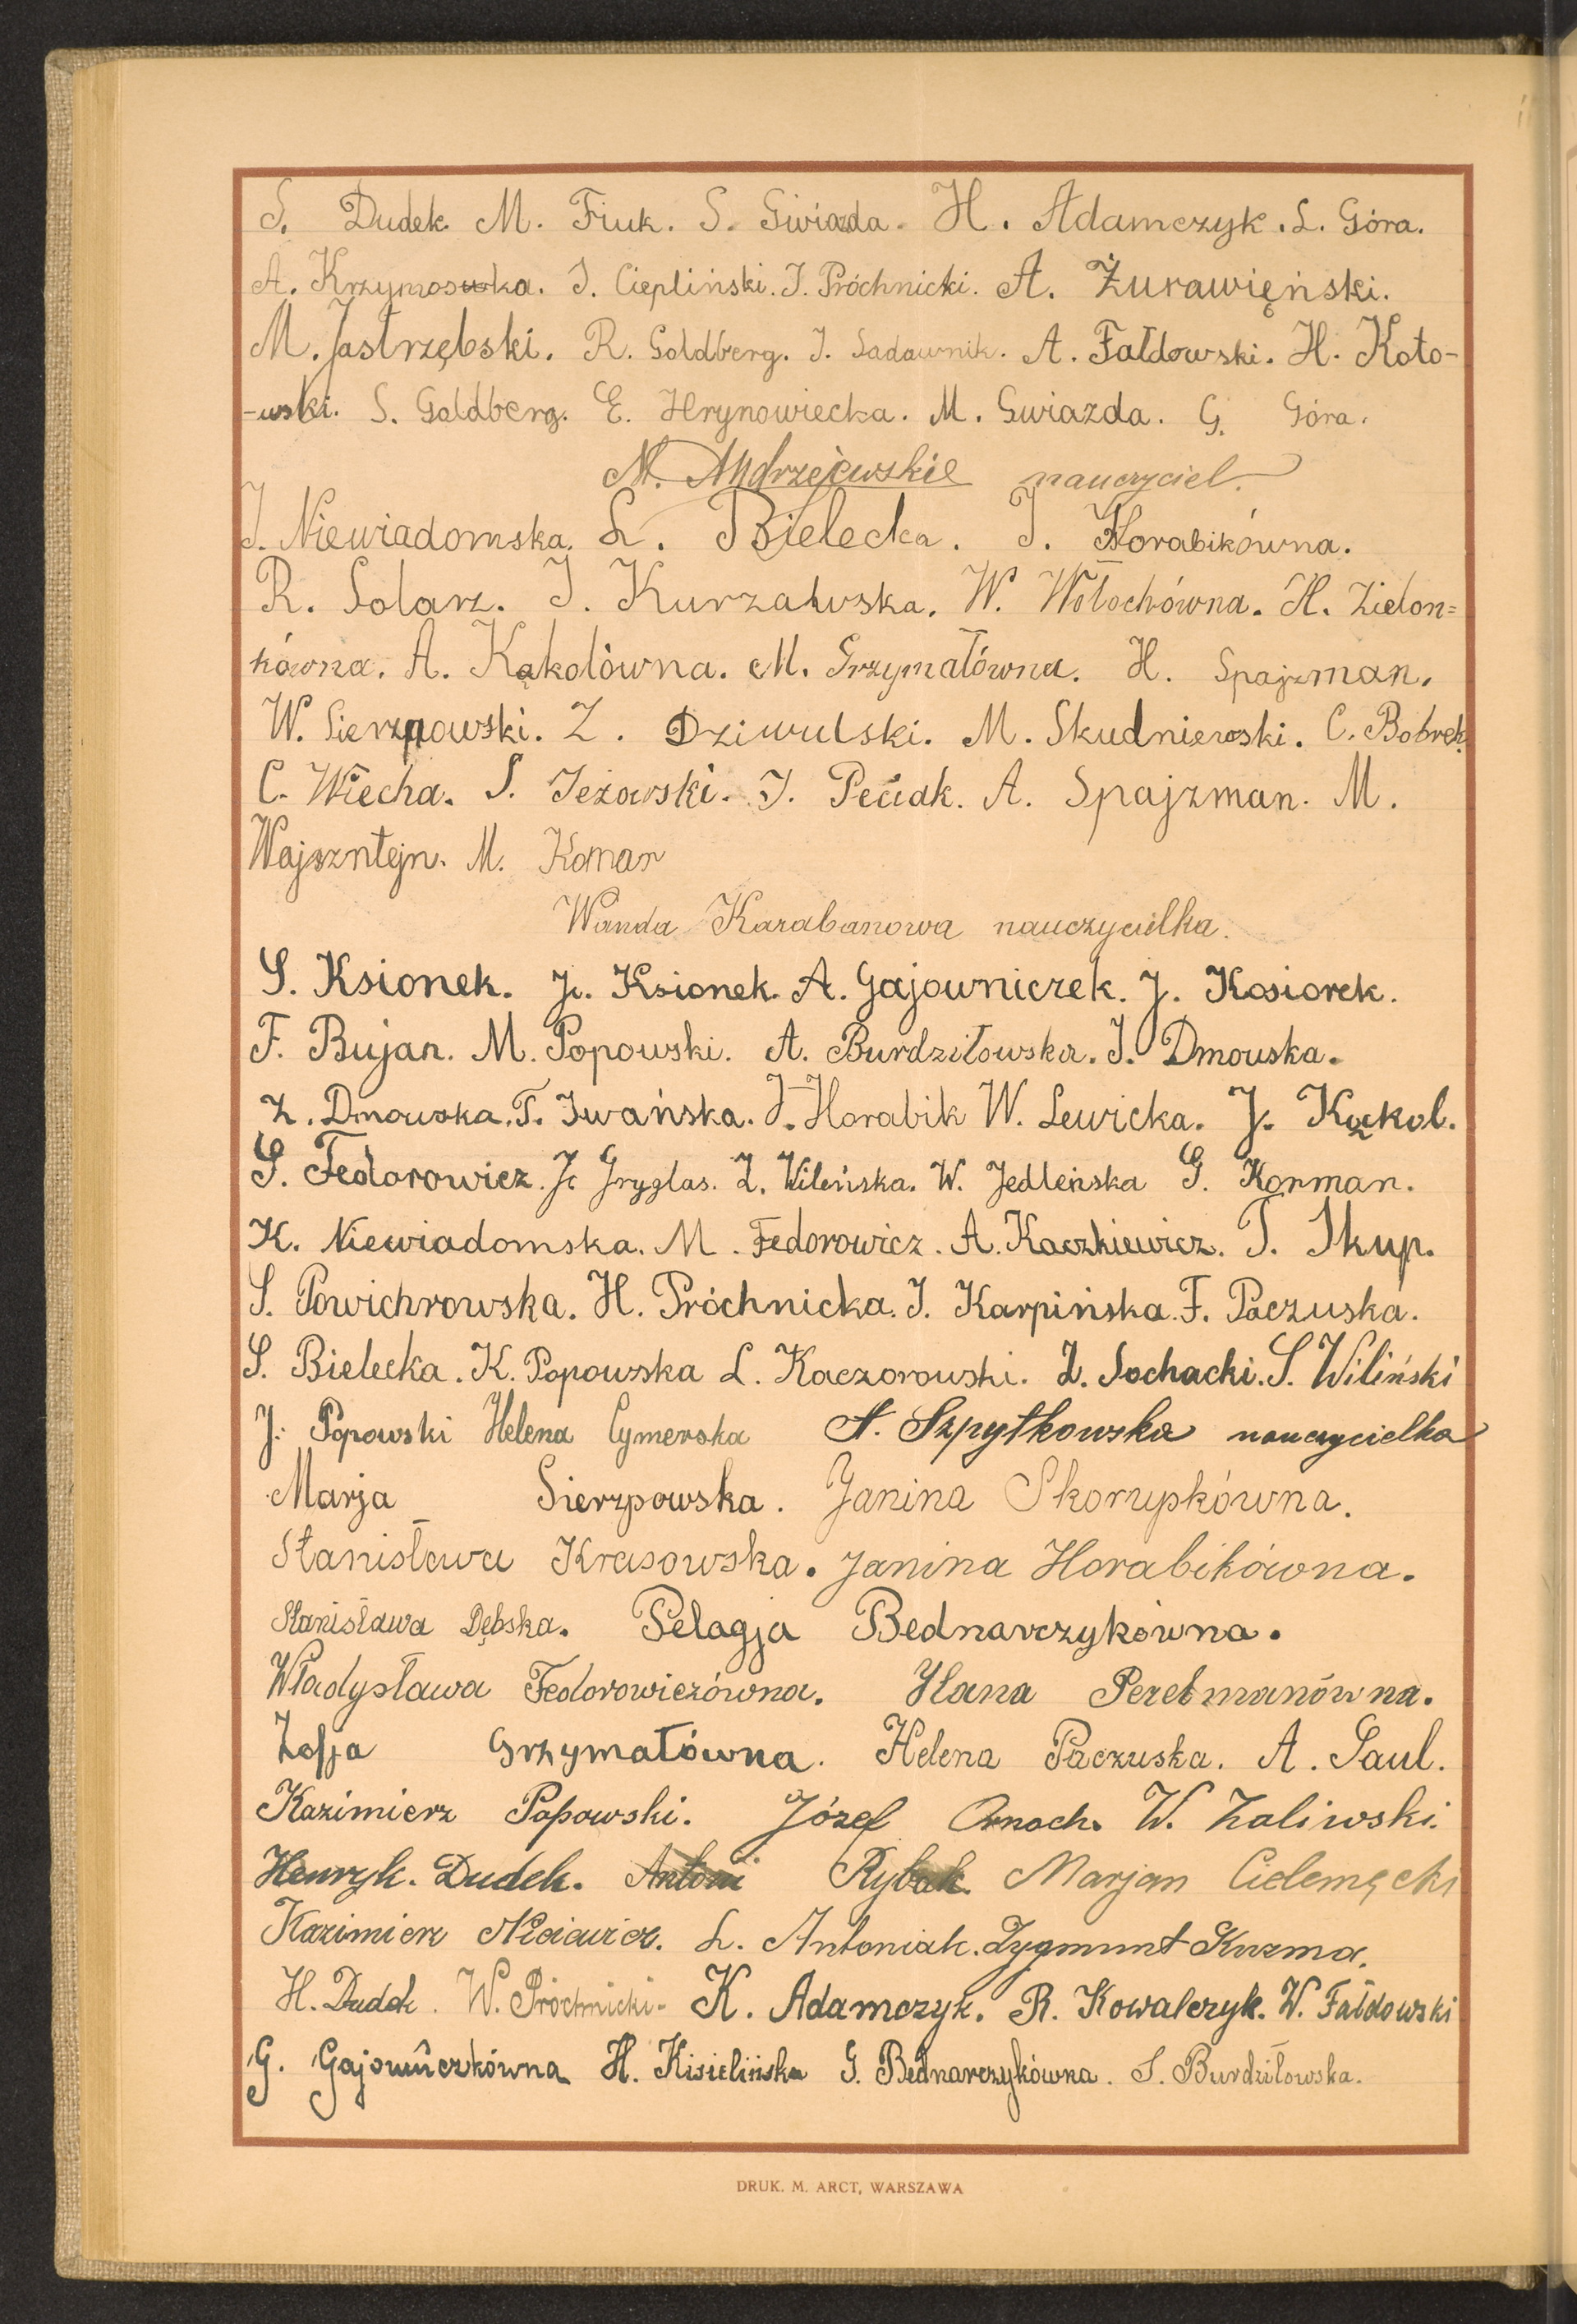 S. Dudek. M. Fiuk. S. Gwiazda. H. Adamczyk. L. Góra.
A. Krzymoswka. J. Ciepliński. J. Próchnicki. A. Żurawięński.
M. Jastrzębski. R. Goldberg. J. Sadownik. A. Fałdowski. H. Koto-
-wski. S. Goldberg. E. Hrynowiecka. M. Gwiazda. G. Góra.
M. Andrzejewskie nauczyciel.
J. Niewiadomska. L. Bielecka. J. Horabikówna.
R. Solarz. J. Kurzawska. W. Wołochówna. H. Zielon=
kówna. A. Kąkolówna. M. Grzymałówna. H. Spajzman.
W. Sierzpowski. Z. Dziwulski. M. Skudniewski. C. Bobrek.
C. Wiecha. S. Jeżowski. J. Peciak. A. Spajzman. M.
Wajszntejn. M. Koman
Wanda Karabanowa nauczycielka.
S. Ksionek. J. Ksionek. A. Gajowniczek. J. Kosiorek.
F. Bujan. M. Popowski. A. Burdziłowska. J. Dmowska.
Z. Dmowska. T. Iwańska. J. Horabik W. Lewicka. J. Kąkol.
S. Fedorowicz. J. Gryglas. Z. Wileńska. W. Jedleńska G. Korman.
K. Niewiadomska. M. Fedorowicz. A. Kaczkiewicz. T. Skup.
S. Powichrowska. H. Próchnicka. J. Karpińska. F. Paczuska.
S. Bielecka. K. Popowska L. Kaczorowski. Z. Sochacki. S. Wiliński
J. Popowski Helena Cymerska A. Szpytkowska nauczycielka
Marja Sierzpowska. Janina Skorupkówna.
Stanisława Krasowska. Janina Horabikówna.
Stanisława Dębska. Pelagja Bednarczykówna.
Władysława Fedorowiczówna. Hana Perelmanówna.
Zofja Grzymałówna. Helena Paczuska. A. Saul.
Kazimierz Popowski. Józef Omoch. W. Zaliwski.
Henryk. Dudek. Antoni Rybak. Marjan Cielemęcki
Kazimierz L. Antoniak. Zygmunt Kuzma.
H. Dudek. W. Próchnicki. K. Adamczyk. R. Kowalczyk. W. Fałdowski
G. Gajowniczkówna H. Kisielińska G. Bednarczykówna. S. Burdziłowska.
DRUK. M. ARCT, WARSZAWA